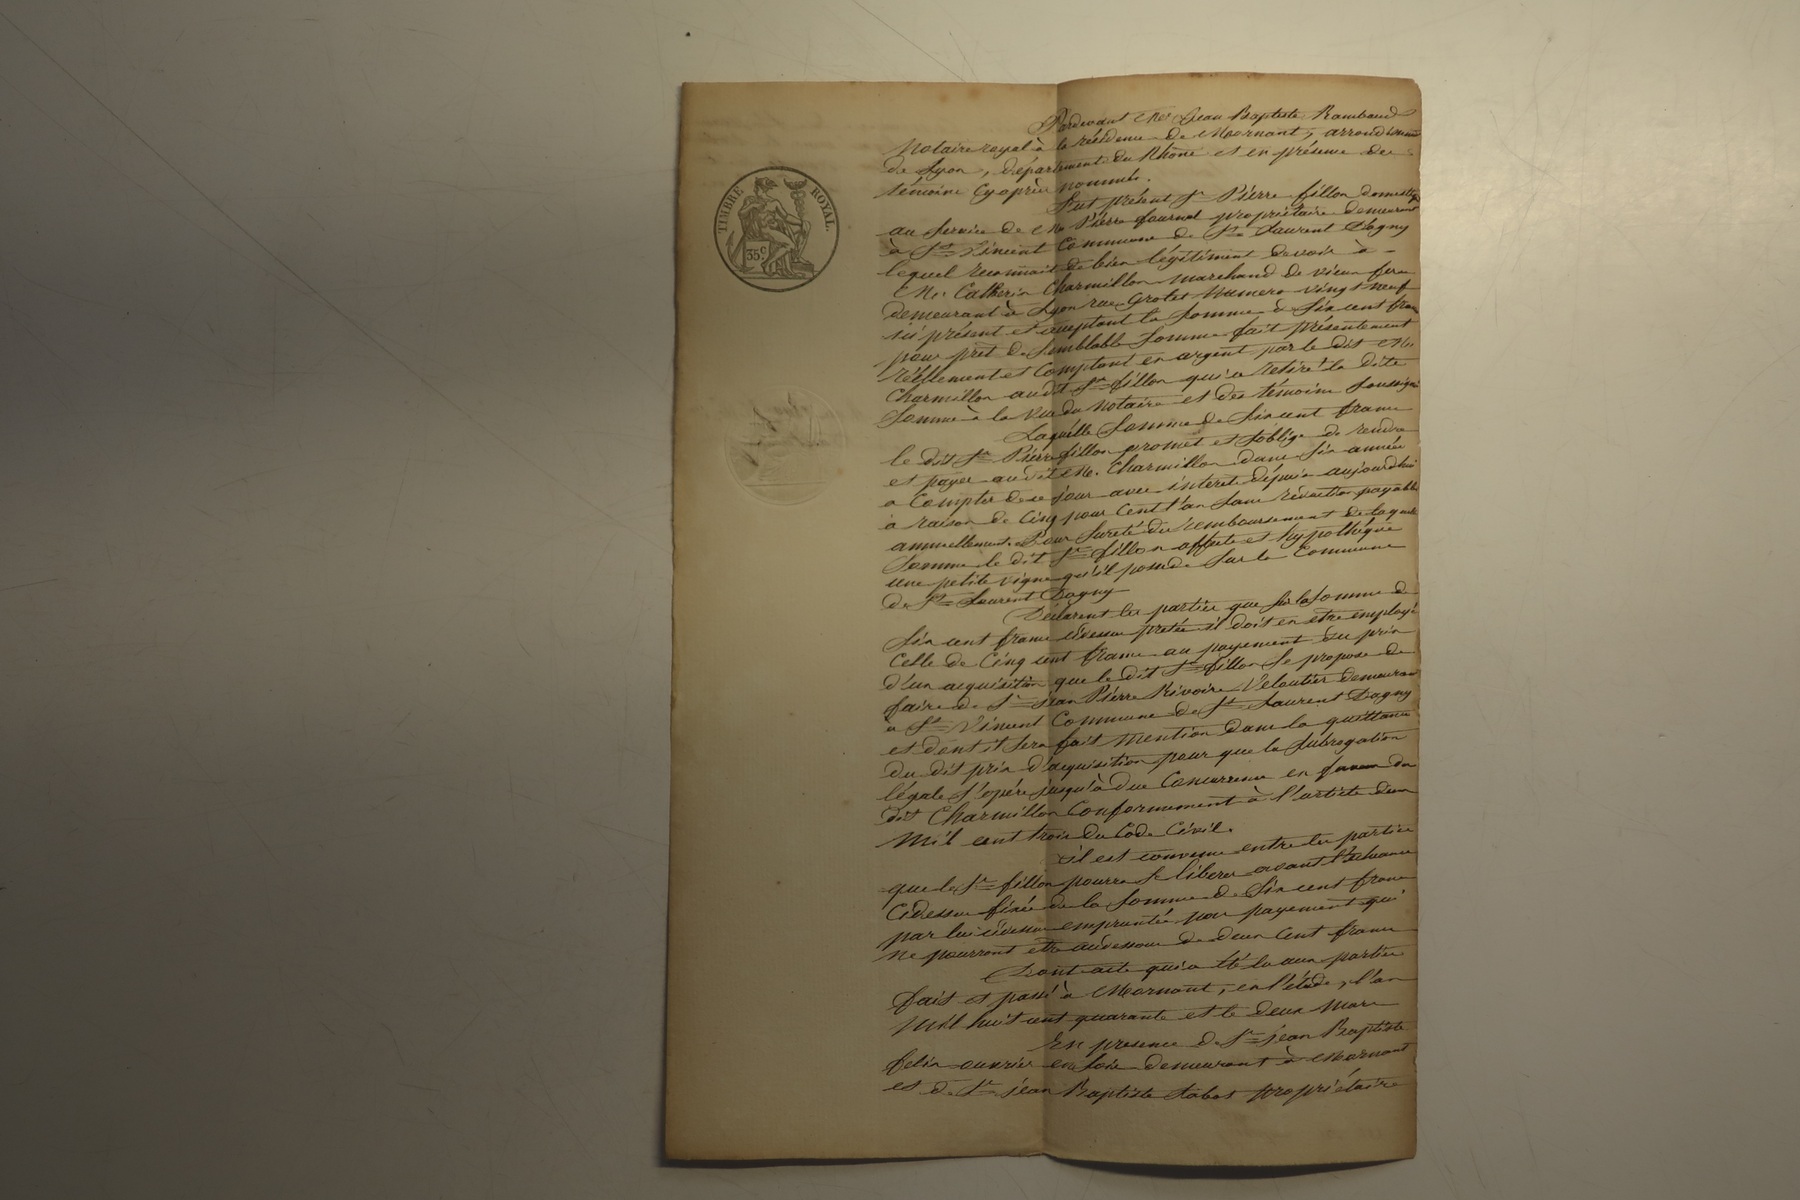 TIMBRE ROYAL.
35 c
Pardevant Me. Jean Baptiste Rambaud
Notaire royal à la résidence de Mornant, arrondissement
de Lyon, département du Rhône et en présence des
témoins Cyaprès nommés.
Fut présent Sr. Pierre fillon domestique
au service de Mr Pierre journal propriétaire demeurant
à St. Vincent Commune de St. Laurent Dagny
lequel reconnait de bien légitiment devoir à -
Mr. Catherin Charmillon marchand de vieux fers
demeurant à Lyon rue Grolet Numero vingt neuf
ici présent et acceptant la somme de Six cent francs
pour prêt de semblable somme fait présentement
réellement et comptant en argent par le dit Mr
Charmillon audit Sr. fillon qui a retiré la dite
somme à la vue du Notaire et des témoins soussignés
Laquelle somme de Six cent francs
le dit Sr. Pierre fillon promet et soblige de rendre
et payer audit Mr. Charmillon dans six années
a Compter de ce jour avec intérêts dépuis aujourdhui
à raison de Cinq pour Cent l'an sans rétention payable
annuellement. Pour sureté du remboursement de laquelle
somme le dit Sr. fillon affecte et hypothéque
une petite vigne qu'il possede sur la Commune
de St. Laurent Dagny
Déclarent les parties que sur la somme de
Six cent francs cidessus pretée il doit en etre employé
Celle de Cinq cent francs au payement du prix
d'un acquisition que le dit Sr. fillon se propose de
faire de Sr. jean Pierre Rivoire Veloutier demeurant
à St. Vincent Commune de St. Laurent Dagny
et dont il sera fait mention dans la quittance
du dit prix d'acquisition pour que la subrogation
légale s'opére jusqu'à due Concurrence en faveur du
dit Charmillon Conformement à l'article deux
Mil cent trois du Code Civil.
il est convenu entre les parties
que le Sr. fillon pourra se libérer avant l'échéance
Cidessus fixée de la somme de Six cent francs
par lui cidessus empruntée par payement qui
ne pourront etre audessous de deux Cent francs
Dont acte qui a été lu aux parties
fait et passé à Mornant, en l'étude, l'an
Mil huit cent quarante et le deux Mars
En presence de Sr. jean Baptiste
felix ouvrier en soie demeurant à Mornant
et de Sr. jean Baptiste propriétaire